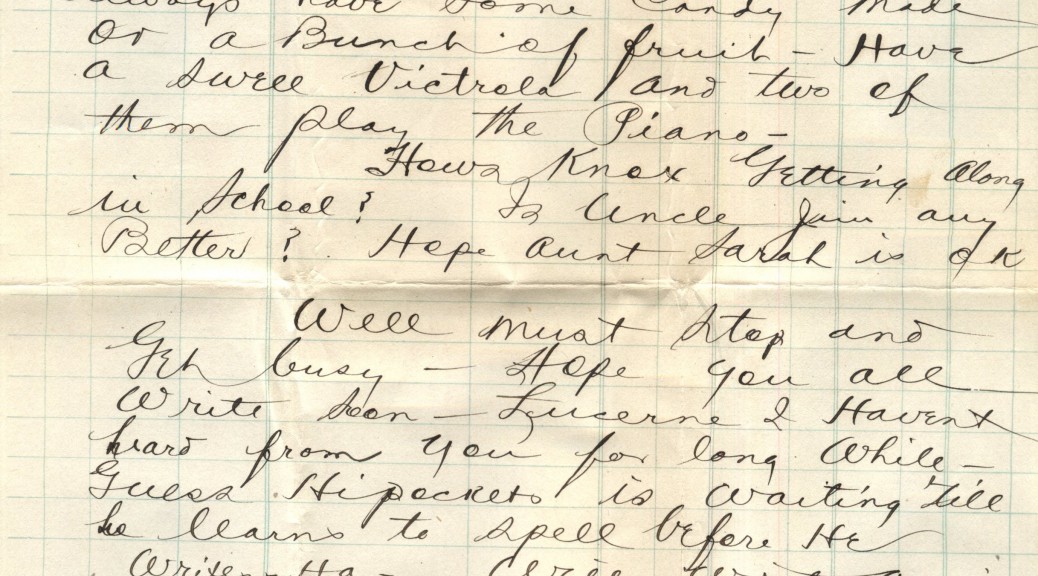 always have some Candy Made
Or a Bunch of fruit - Have
a swell Victrola and two of
them play the Piano -
Hows Knox Getting Along
in School? Is Uncle Jim any
Better? Hope Aunt Sarah is OK
Well must Stop and
Get busy - Hope you all
Write soon - Lucerne I Havent
heard from you for long While -
Guess Hipockets is Waiting 'till
he learns to spell before He
Writes